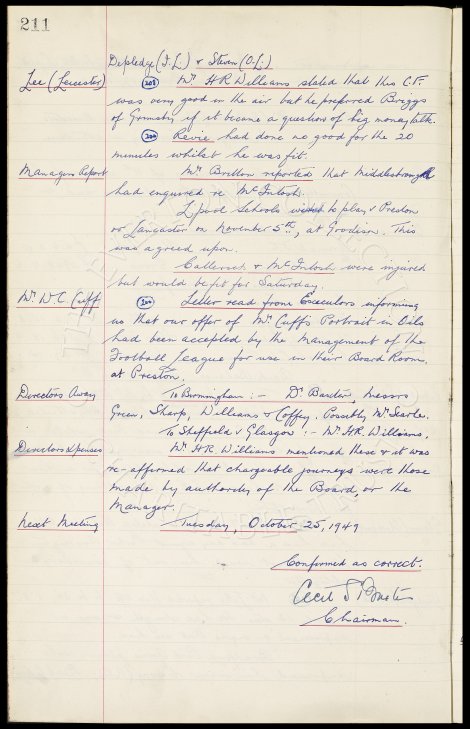 211
Depledge (I.L.) & Steven (O.L.)
Lee (Leicester) 201 Mr. H R Williams stated that this C.F.
was very good in the air but he preferred Briggs
of Grimsby if it became a question of big money with.
200 Revie had done no good for the 20
minutes whilst he was fit.
Managers Report Mr. Britton reported that Middlesbrough
had enquired re McIntosh.
L'pool Schools wish to play v Preston
or Lancaster on November 5th, at Goodison. This
was agreed upon.
Catterick & McIntosh were injured
but would be fit for Saturday.
Mr. W C. Cuff 200 Letter read from Executors informing
us that our offer of Mr. Cuff's Portrait in Oils
had been accepted by the Management of the
Football League for use in their Board Room,
at Preston.
Directors Away To Birmingham :- Dr. Baxter, Messrs
Green, Sharp, Williams & Coffey. Possibly Mr Searle.
To Sheffield v Glasgow :- Mr. H.R. Williams.
Directors Xpenses Mr. H R Williams mentioned these & it was
re-affirmed that chargeable journeys were those
made by authority of the Board, or the
Manager.
Next Meeting Tuesday, October 25, 1949
Confirmed as correct.
Cecil S Baxter
Chairman.